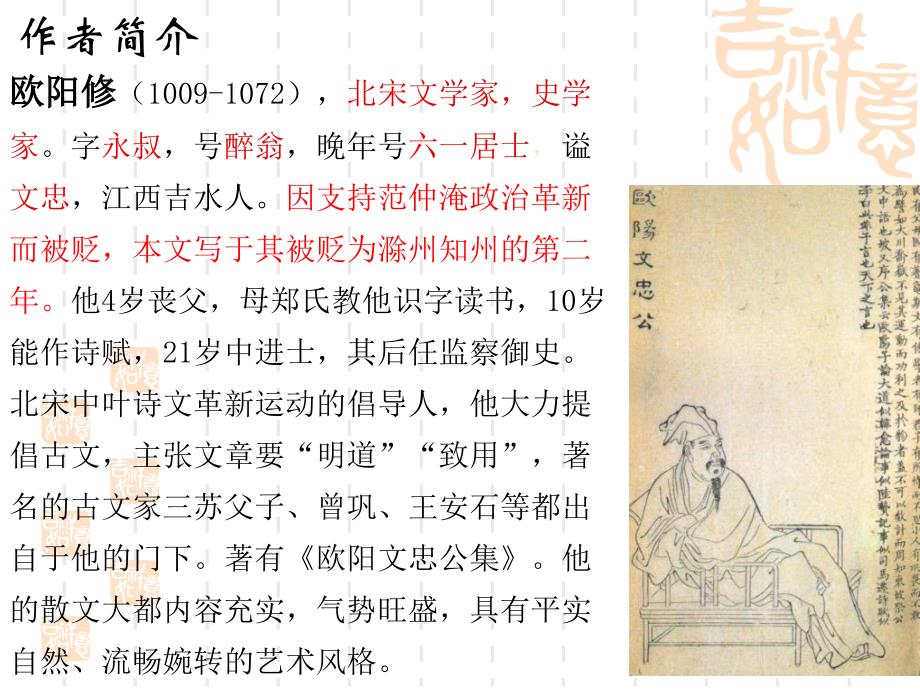 作者简介
欧阳修（1009-1072），北宋文学家，史学
家。字永叔，号醉翁，晚年号六一居士，谥
文忠，江西吉水人。因支持范仲淹政治革新
而被贬，本文写于其被贬为滁州知州的第二
年。他4岁丧父，母郑氏教他识字读书，10岁
能作诗赋，21岁中进士，其后任监察御史。
北宋中叶诗文革新运动的倡导人，他大力提
倡古文，主张文章要“明道”“致用”，著
名的古文家三苏父子、曾巩、王安石等都出
自于他的门下。著有《欧阳文忠公集》。他
的散文大都内容充实，气势旺盛，具有平实
自然、流畅婉转的艺术风格。
吉祥如意
歐陽文忠公